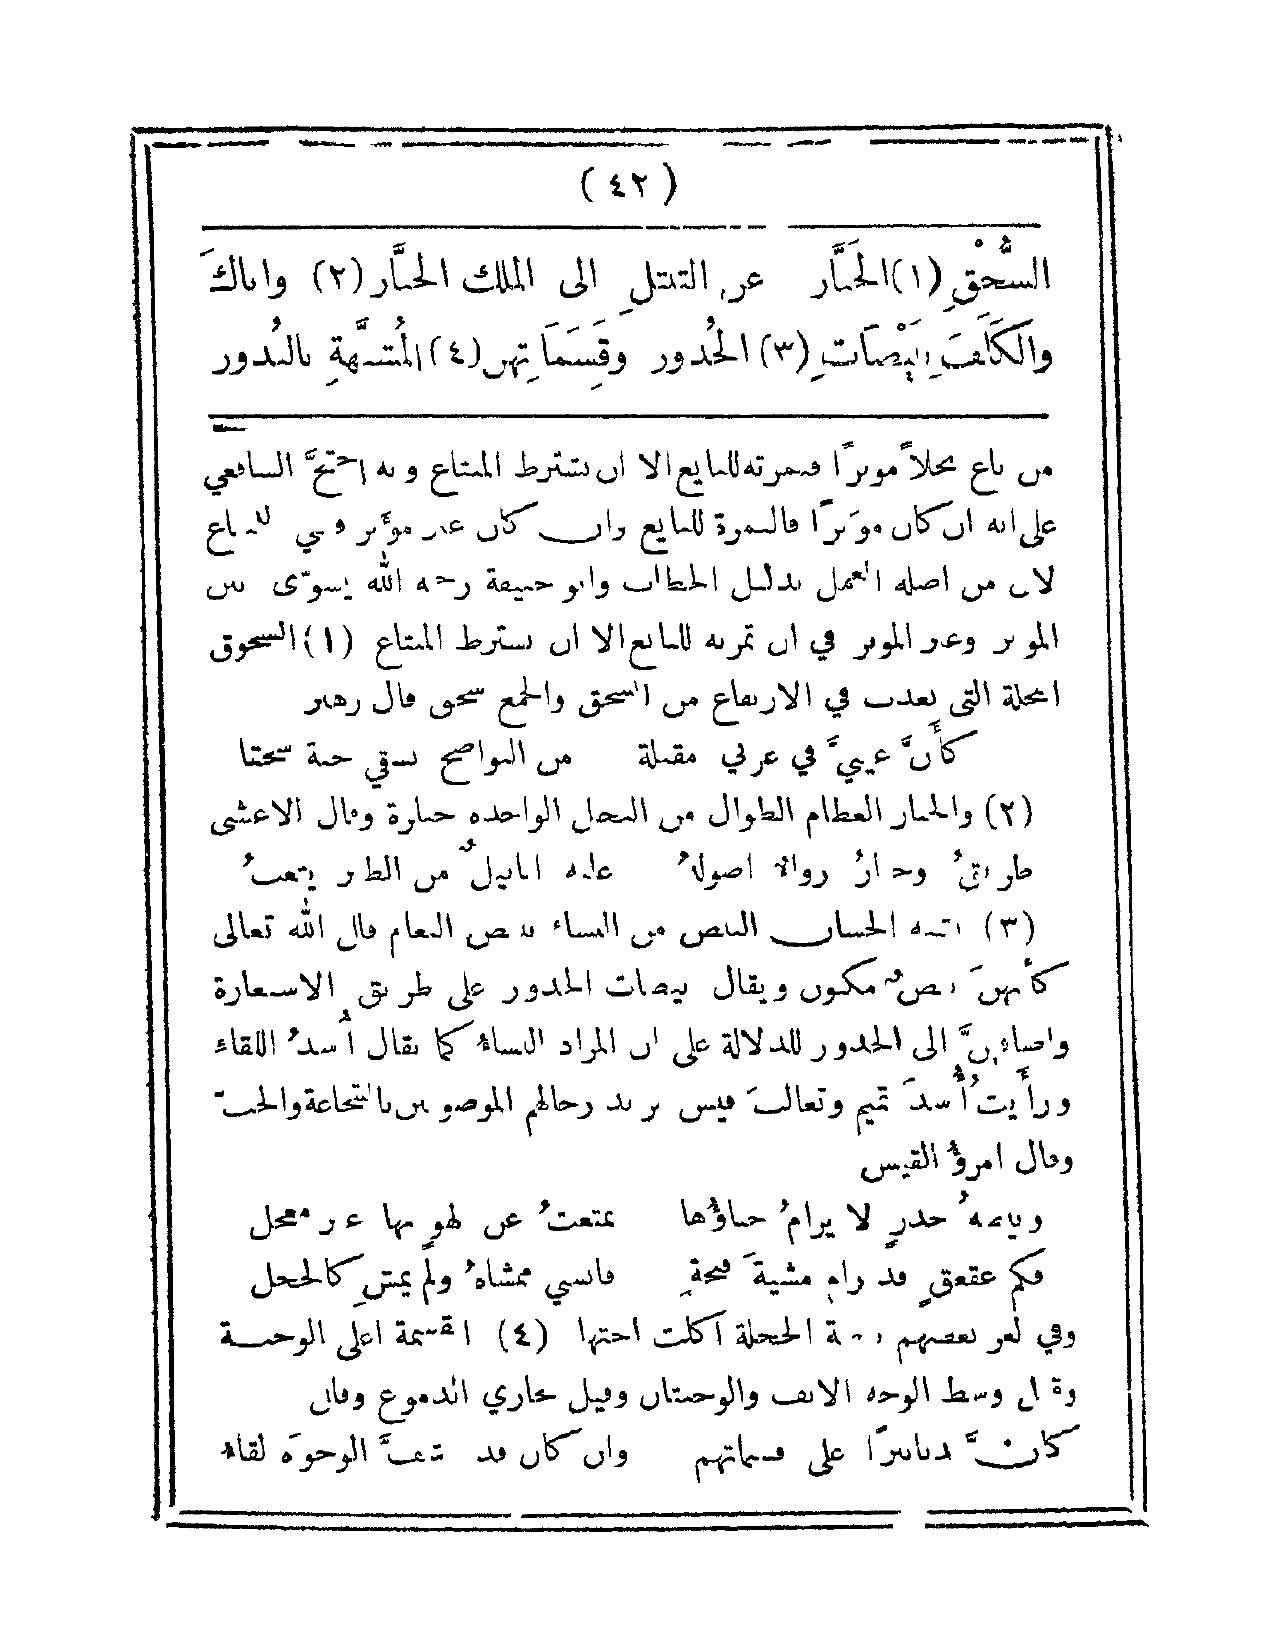 ( ٤٢ )
السُّحُقِ (١) الجَبَّار عن التبتل الى الملك الجبَّار (٢) واياكَ
والكَلَفَ بِبَيْضَاتِ (٣) الخُدور وقَسِمَاتِهن (٤) المُشبَّهةِ بالبُدور
من باع نخلاً موبرًا فثمرته للبايع الا ان يشترط المبتاع وبه احتجَّ الشافعي
على انه ان كان موَبرًا فالثمرة للبايع وان كان غير مؤَبر فهي للمبتاع
لان من اصله العمل بدليل الخطاب وابو حنيفة رحمه الله يسوّى بين
الموبر وغير الموبر في ان ثمرته للبايع الا ان يشترط المبتاع (١) السحوق
النخلة التى بعدت في الارتفاع من السحق والجمع سحق قال زهير
كأَنَّ عينيَّ في غربي مقتلة من النواضح تسقي جنة سحقا
(٢) والجبار العظام الطوال من النخل الواحده جبارة وقال الاعشى
طريقٌ وجبارٌ رواءٌ اصولهُ عليه ابابيلٌ من الطير ينعبُ
(٣) شبه الحسان البيض من النساء ببيض النعام قال الله تعالى
كأنهنَّ بيضٌ مكنون ويقال بيضات الخدور على طريق الاستعارة
واضافتهنَّ الى الخدور للدلالة على ان المراد النساءُ كما يقال أَسدُ اللقاء
ورأَيتُ أُسدَ تميم وتعالبَ قيس يريد رجالهم الموصوفين بالشجاعة والخبّ
وقال امرؤُ القيس
وبيضةُ خدرٍ لا يرامُ خباؤُها تمتعتُ عن لهوٍ بها غير معجل
فكم عقعقٍ قد رام مشيةَ قبجةٍ فانسي ممشاهُ ولم يمشِ كالحجل
وفي لغز بعضهم بيضة الحجلة آكلت اختها (٤) القسيمة اعلى الوجنـــة
وقيل وسط الوجه الانف والوجنتان وقيل مجاري الدموع وقال
كأنَّ دنانيرًا على قسماتهم وان كان قد شفَّ الوجوهَ لقاءُ